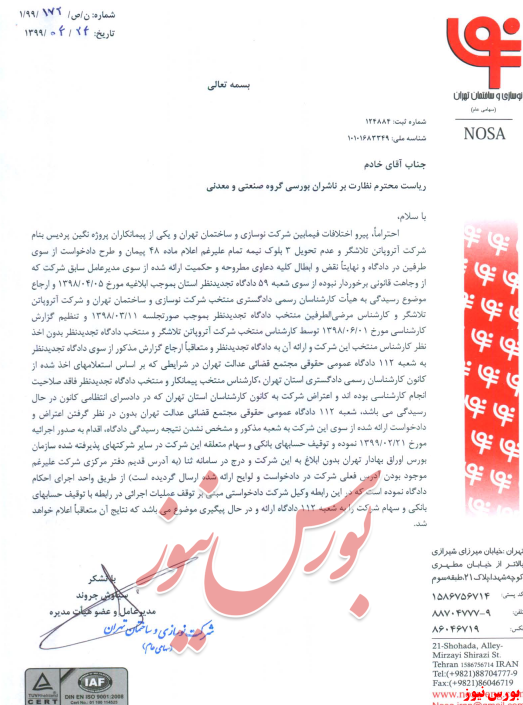 شماره: ن/ص/ ۱۷۲ ۱/۹۹/
تاریخ: ۲۴ / ۰۴ /۱۳۹۹
نوسازی و ساختمان تهران
(سهامی عام)
NOSA
بسمه تعالی
شماره ثبت: ۱۲۴۸۸۴
شناسه ملی: ۱۰۱۰۱۶۸۳۳۴۹
جناب آقای خادم
ریاست محترم نظارت بر ناشران بورسی گروه صنعتی و معدنی
با سلام،
احتراماً، پیرو اختلافات فیمابین شرکت نوسازی و ساختمان تهران و یکی از پیمانکاران پروژه نگین پردیس بنام
شرکت آتروپاتن تلاشگر و عدم تحویل ۳ بلوک نیمه تمام علیرغم اعلام ماده ۴۸ پیمان و طرح دادخواست از سوی
طرفین در دادگاه و نهایتاً نقض و ابطال کلیه دعاوی مطروحه و حکمیت ارائه شده از سوی مدیرعامل سابق شرکت که
از وجاهت قانونی برخوردار نبوده از سوی شعبه ۵۹ دادگاه تجدیدنظر استان بموجب ابلاغیه مورخ ۱۳۹۸/۰۴/۰۵ و ارجاع
موضوع رسیدگی به هیأت کارشناسان رسمی دادگستری منتخب شرکت نوسازی و ساختمان تهران و شرکت آتروپاتن
تلاشگر و کارشناس مرضی‌الطرفین منتخب دادگاه تجدیدنظر بموجب صورتجلسه ۱۳۹۸/۰۳/۱۱ و تنظیم گزارش
کارشناسی مورخ ۱۳۹۸/۰۶/۰۱ توسط کارشناس منتخب شرکت آتروپاتن تلاشگر و منتخب دادگاه تجدیدنظر بدون اخذ
نظر کارشناس منتخب این شرکت و ارائه آن به دادگاه تجدیدنظر و متعاقباً ارجاع گزارش مذکور از سوی دادگاه تجدیدنظر
به شعبه ۱۱۲ دادگاه عمومی حقوقی مجتمع قضائی عدالت تهران در شرایطی که بر اساس استعلامهای اخذ شده از
کانون کارشناسان رسمی دادگستری استان تهران ،کارشناس منتخب پیمانکار و منتخب دادگاه تجدیدنظر فاقد صلاحیت
انجام کارشناسی بوده اند و اعتراض شرکت به کانون کارشناسان استان تهران که در دادسرای انتظامی کانون در حال
رسیدگی می باشد، شعبه ۱۱۲ دادگاه عمومی حقوقی مجتمع قضائی عدالت تهران بدون در نظر گرفتن اعتراض و
دادخواست ارائه شده از سوی این شرکت به شعبه مذکور و مشخص نشدن نتیجه رسیدگی دادگاه، اقدام به صدور اجرائیه
مورخ ۱۳۹۹/۰۲/۲۱ نموده و توقیف حسابهای بانکی و سهام متعلقه این شرکت در سایر شرکتهای پذیرفته شده سازمان
بورس اوراق بهادار تهران بدون ابلاغ به این شرکت و درج در سامانه ثنا (به آدرس قدیم دفتر مرکزی شرکت علیرغم
موجود بودن آدرس فعلی شرکت در دادخواست و لوایح ارائه شده ارسال گردیده است) از طریق واحد اجرای احکام
دادگاه نموده است که در این رابطه وکیل شرکت دادخواستی مبنی بر توقف عملیات اجرائی در رابطه با توقیف حسابهای
بانکی و سهام شرکت را به شعبه ۱۱۲ دادگاه ارائه و در حال پیگیری موضوع می باشد که نتایج آن متعاقباً اعلام خواهد
شد.
بورس نیوز
با تشکر
سیاوش جروند
مدیرعامل و عضو هیأت مدیره
شرکت نوسازی و ساختمان تهران
(سهامی عام)
تهران :خیابان میرزای شیرازی
بالاتر از خیابان مطهری
کوچه شهدا پلاک ۲۱، طبقه سوم
کد پستی: ۱۵۸۶۷۵۶۷۱۴
تلفن: ۸۸۷۰۴۷۷۷-۹
فکس: ۸۶۰۴۶۷۱۹
21-Shohada, Alley-
Mirzayi Shirazi St.
Tehran 1586756714 IRAN
Tel:(+9821)88704777-9
Fax:(+9821)86046719
بورس نیوز
IAF
DIN EN ISO 9001:2008
CERT